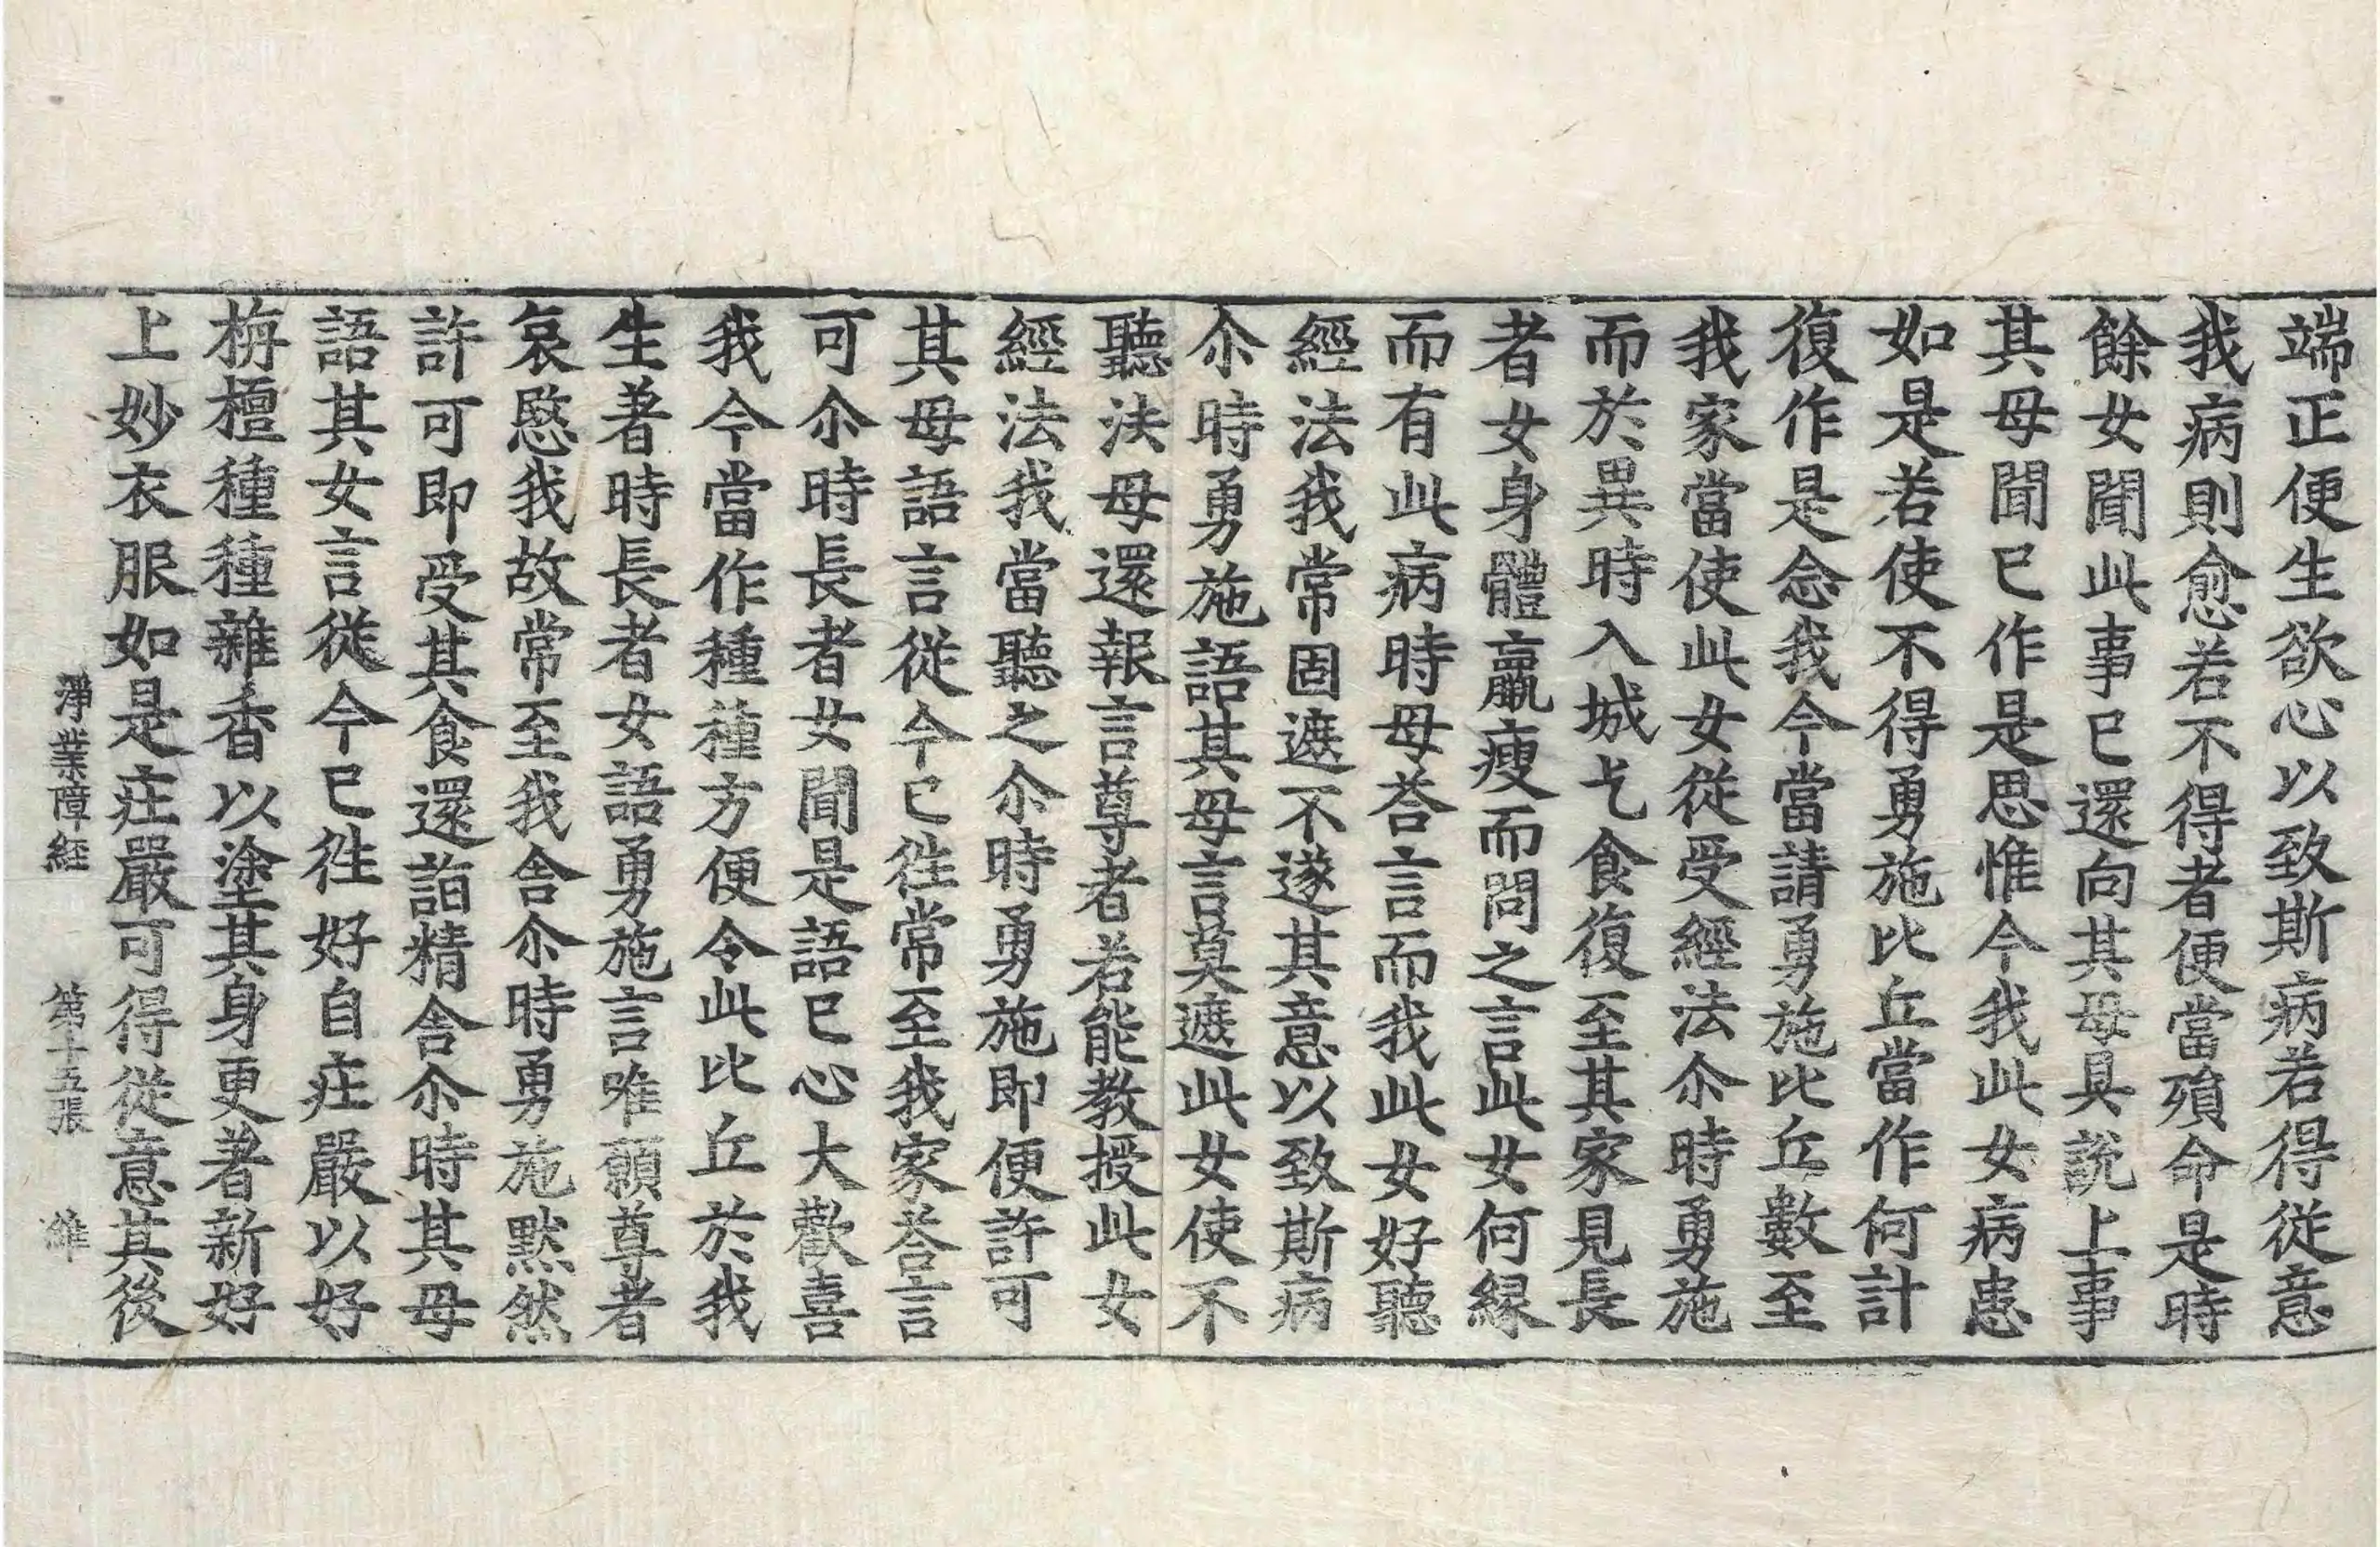 端正便生欲心以致斯病若得從意
我病則愈若不得者便當殞命是時
餘女聞此事已還向其母具說上事
其母聞已作是思惟今我此女病患
如是若使不得勇施比丘當作何計
復作是念我今當請勇施比丘數至
我家當使此女從受經法尒時勇施
而於異時入城乞食復至其家見長
者女身體羸瘦而問之言此女何緣
而有此病時母荅言而我此女好聽
經法我常固遮不遂其意以致斯病
尒時勇施語其母言莫遮此女使不
聽法母還報言尊者若能教授此女
經法我當聽之尒時勇施即便許可
其母語言從今已徃常至我家荅言
可尒時長者女聞是語已心大歡喜
我今當作種種方便令此比丘於我
生著時長者女語勇施言唯願尊者
哀愍我故常至我舍尒時勇施默然
許可即受其食還詣精舍尒時其母
語其女言從今已徃好自莊嚴以好
栴檀種種雜香以塗其身更著新好
上妙衣服如是莊嚴可得從意其後
淨業障經 第十五張 維